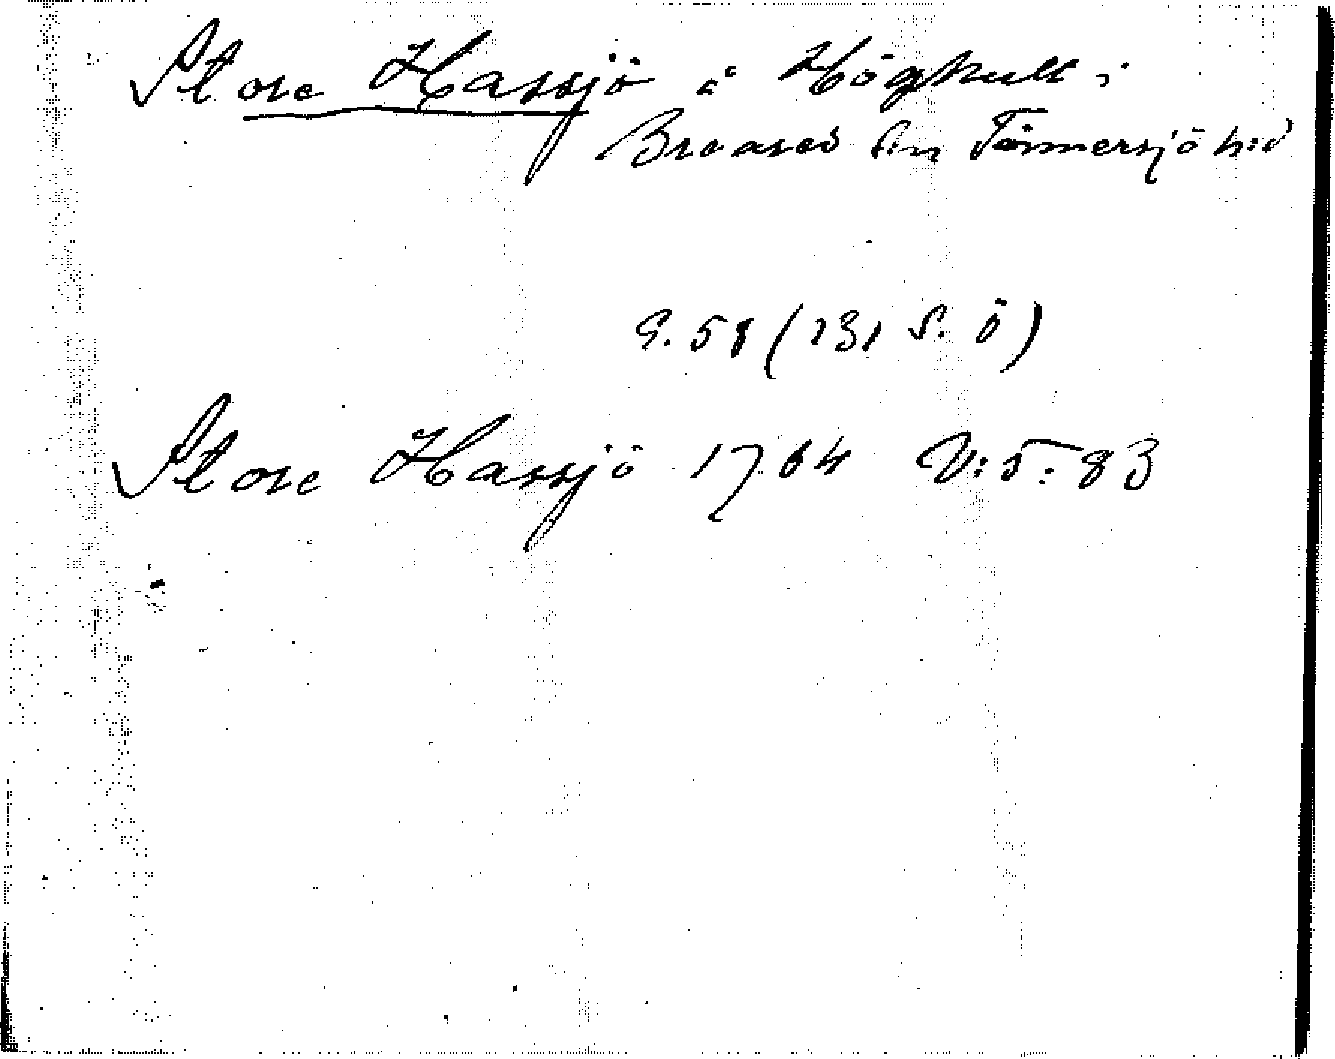 Store Hassjö å Högkull i
Breared sn Tönnersjö hd
G. 58 (131 S. Ö)
Store Hassjö 1764 V:5:83